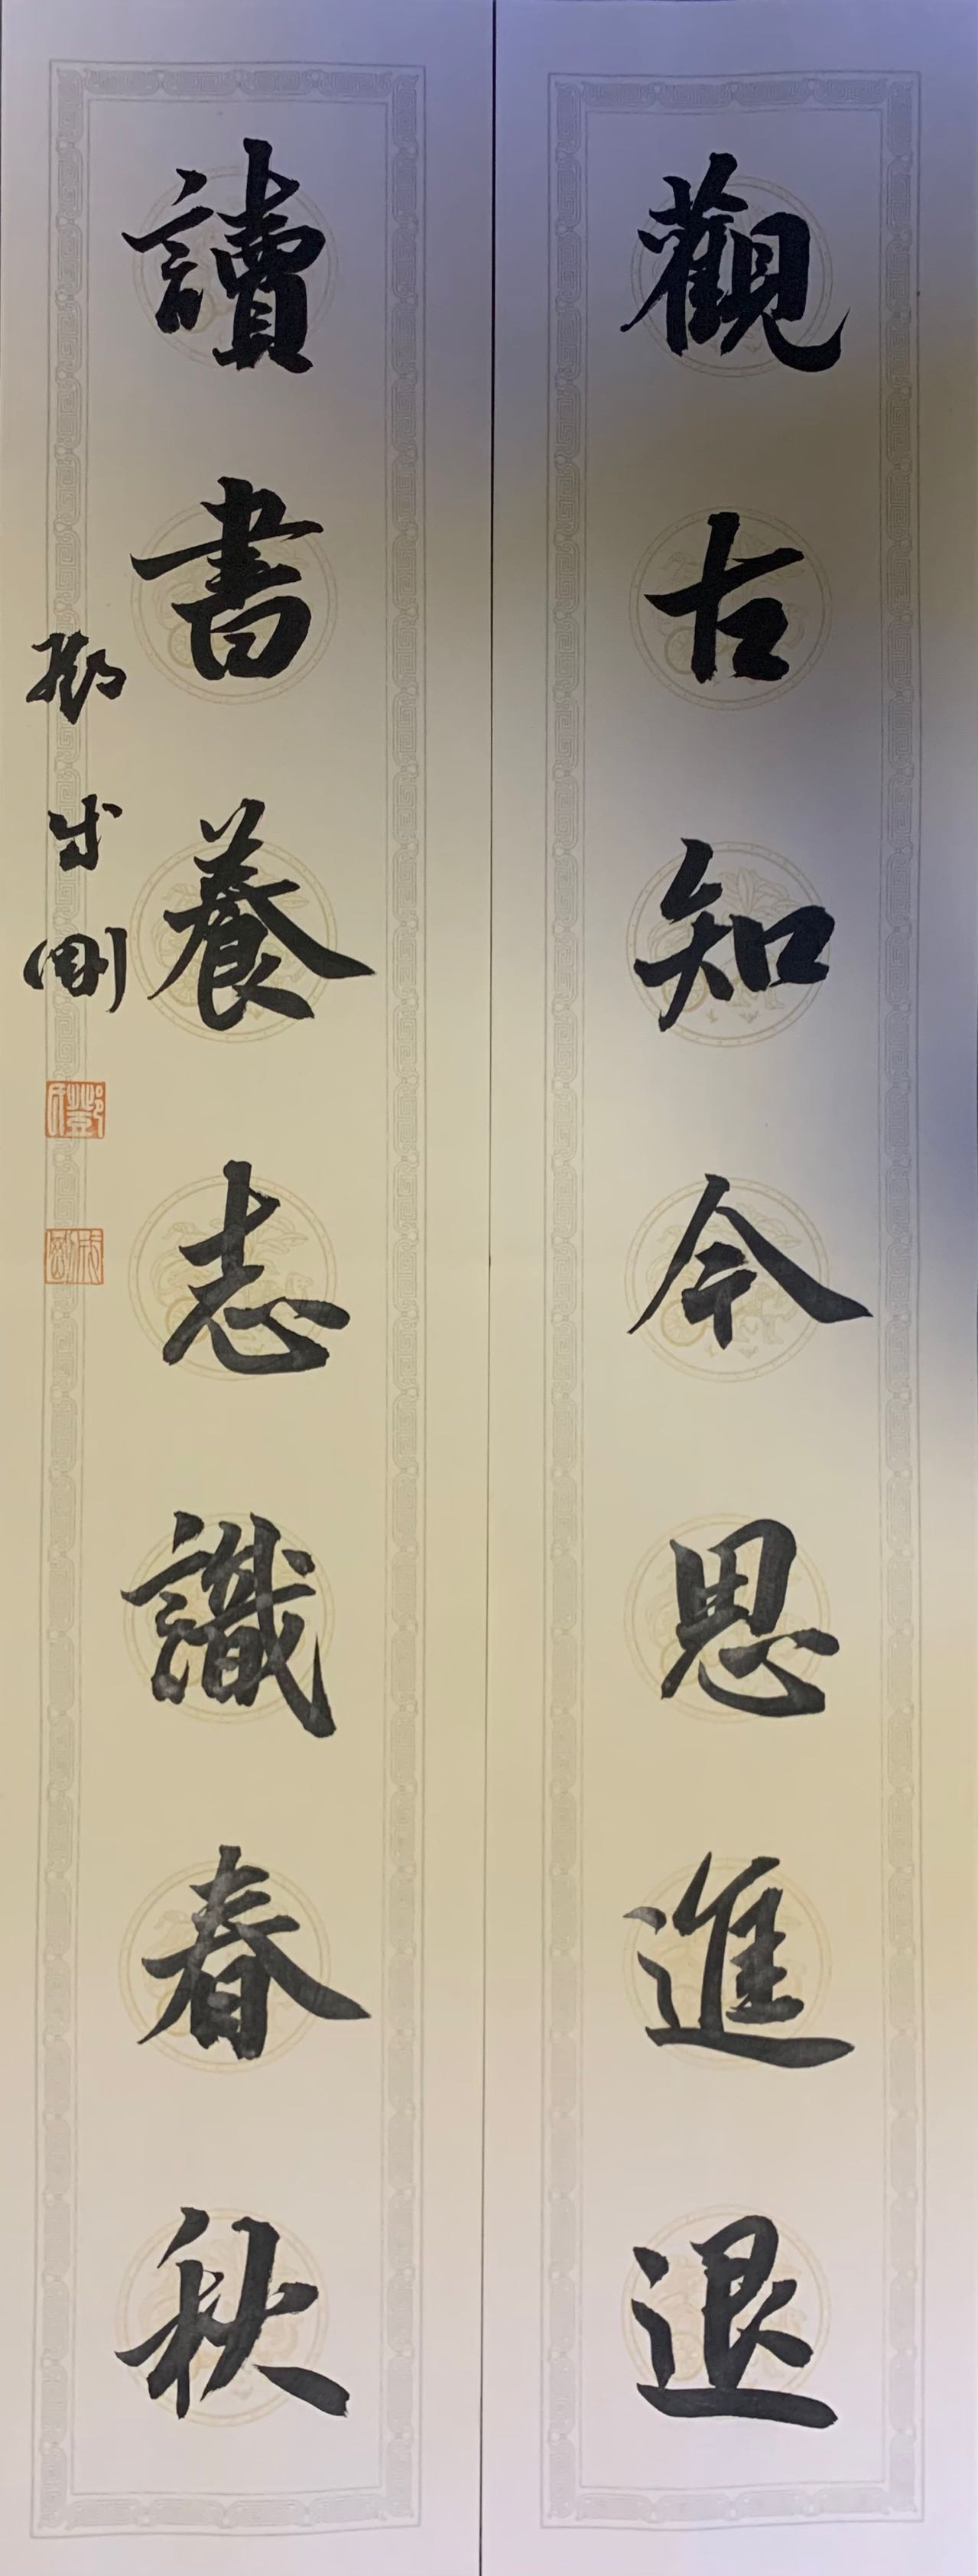 觀古知今思進退
讀書養志識春秋
鄧成剛